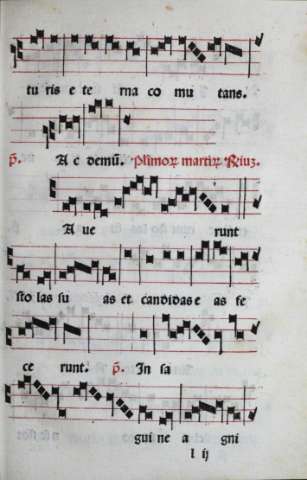 tu ris e te rna co mu tans.
p̄. A c demū. Plīmoꝝ martiꝝ
A ue runt
sto las su as et candidas e as fe
ce runt. p̄. In sa
gui ne a gni
l ij